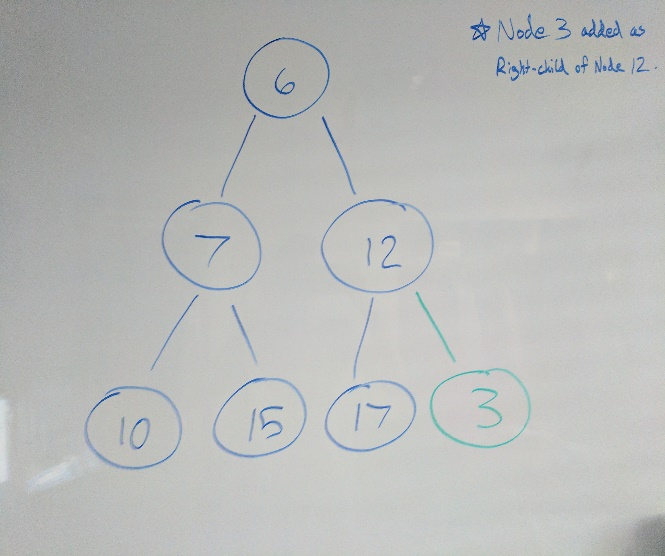 ☆ Node 3 added as
Right-child of Node 12.
6
7 12
10 15 17 3